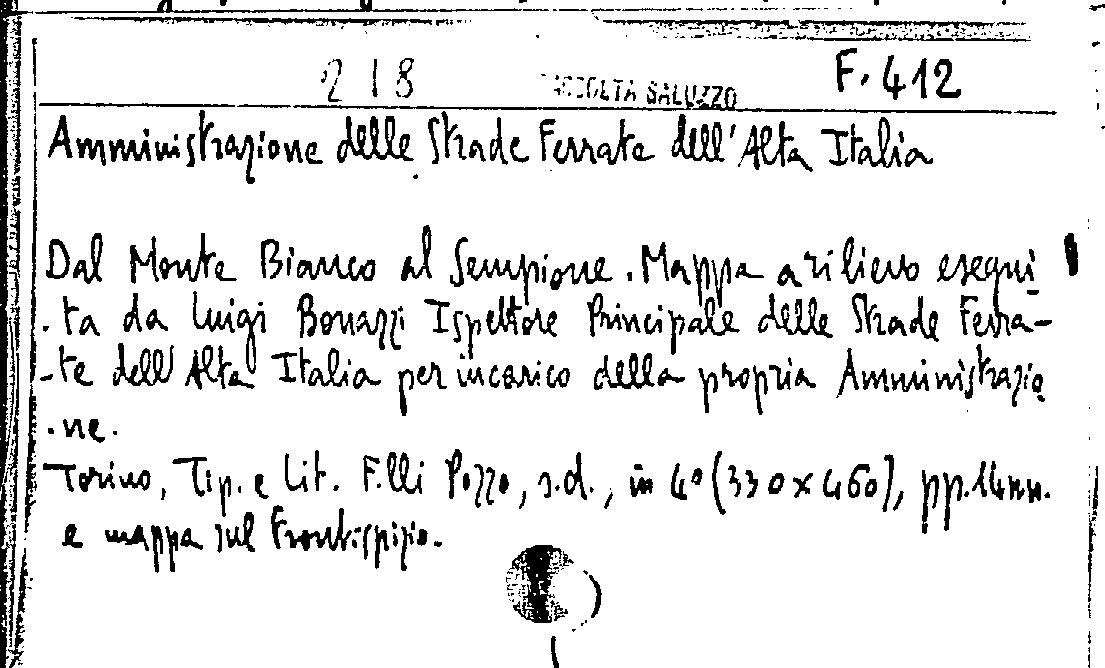 218 RACCOLTA SALUZZO F. 412
Amministrazione delle Strade Ferrate dell'Alta Italia
Dal Monte Bianco al Sempione. Mappa a rilievo esegui
-ta da Luigi Bonazzi Ispettore Principale delle Strade Ferra-
-te dell'Alta Italia per incarico della propria Amministrazio
-ne.
Torino, Tip. e Lit. F.lli Pozzo, s.d., in 4° (330x460), pp. 14 nn.
e mappa sul Frontispizio.